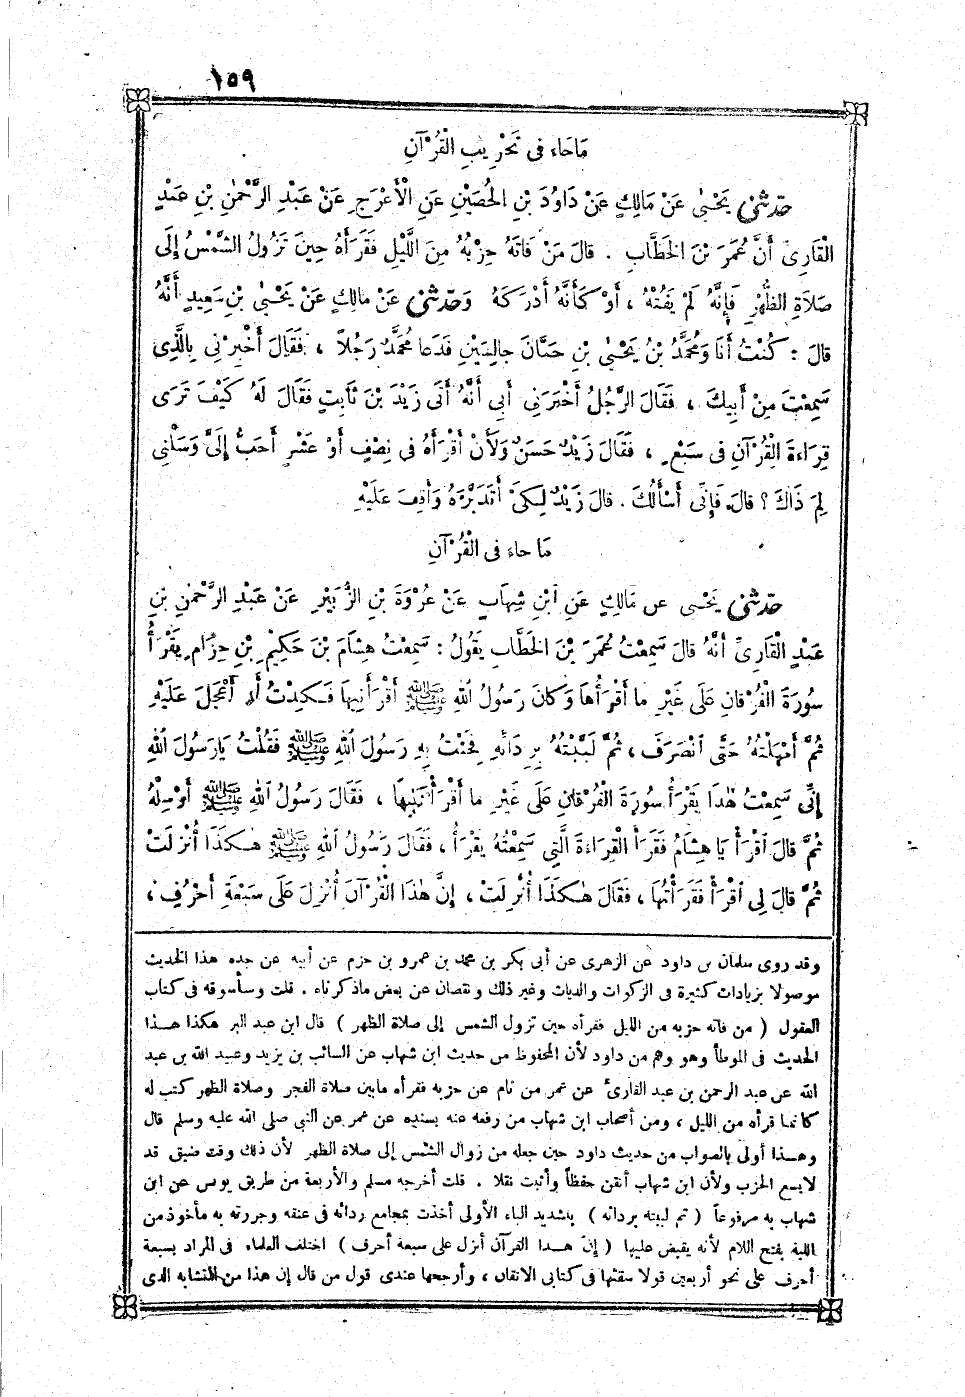 ١٥٩
مَاجَاء فى تَحْزِيبِ الْقُرْآنِ
حَدّثنى يَحْيٰى عَنْ مَالِكٍ عَنْ دَاوُدَ بْنِ الْحُصَيْنِ عَنِ الْأَعْرَجِ عَنْ عَبْدِ الرَّحْمٰنِ بْنِ عَبْدٍ
الْقَارِىِّ أَنَّ عُمَرَ بْنَ الْخَطَّابِ . قالَ مَنْ فَاتَهُ حِزْبُهُ مِنَ اللَّيْلِ فَقَرَأَهُ حِينَ تَزُولُ الشَّمْسُ إِلَى
صَلَاةِ الظُّهْرِ فَإِنَّهُ لَمْ يَفُتْهُ ، أَوْ كَأَنَّهُ أَدْرَكَهُ وَحَدّثنى عَنْ مَالِكٍ عَنْ يَحْيٰى بْنِ سَعِيدٍ أَنَّهُ
قالَ : كُنْتُ أَنَا وَمُحَمَّدُ بْنُ يَحْيٰى بْنِ حَبَّانَ جالِسَيْنِ فَدَعا مُحَمَّدٌ رَجُلاً ، فَقَالَ أَخْبِرْنِى بِالَّذِى
سَمِعْتَ مِنْ أَبِيكَ ، فَقَالَ الرَّجُلُ أَخْبَرَنِى أَبِى أَنَّهُ أَتَى زَيْدَ بْنَ ثَابِتٍ فَقَالَ لَهُ كَيْفَ تَرَى
قِرَاءَةَ الْقُرْآنِ فى سَبْعٍ ، فَقَالَ زَيْدٌ حَسَنٌ وَلَأَنْ أَقْرَأَهُ فى نِصْفٍ أَوْ عَشْرٍ أَحَبُّ إِلَىَّ وَسَلْنِى
لِمَ ذَاكَ ؟ قالَ فَإِنِّى أَسْأَلُكَ . قالَ زَيْدٌ لِكَىْ أَتَدَبَّرَهُ وَأَقِفَ عَلَيْهِ
مَا جاءَ فى الْقُرْآنِ
حَدّثنى يَحْيٰى عن مَالِكٍ عَنِ ابْنِ شِهَابٍ عَنْ عُرْوَةَ بْنِ الزُّبَيْرِ عَنْ عَبْدِ الرَّحْمٰنِ بْنِ
عَبْدٍ الْقَارِىِّ أَنَّهُ قالَ سَمِعْتُ عُمَرَ بْنَ الْخَطَّابِ يَقُولُ : سَمِعْتُ هِشَامَ بْنَ حَكِيمِ بْنِ حِزَامٍ يَقْرَأُ
سُورَةَ الْفُرْقانِ عَلَى غَيْرِ ما أَقْرَأُها وَكانَ رَسُولُ اللهِ ﷺ أَقْرَأَنِيهَا فَكِدْتُ أَنْ أَعْجَلَ عَلَيْهِ
ثُمَّ أَمْهَلْتُهُ حَتَّى انْصَرَفَ ، ثُمَّ لَبَّبْتُهُ بِرِدَائِهِ فَجِئْتُ بِهِ رَسُولَ اللهِ ﷺ فَقُلْتُ يَارَسُولَ اللهِ
إِنِّى سَمِعْتُ هٰذَا يَقْرَأُ سُورَةَ الْفُرْقانِ عَلَى غَيْرِ ما أَقْرَأْتَنِيهاَ ، فَقَالَ رَسُولُ اللهِ ﷺ أَرْسِلْهُ
ثُمَّ قالَ اقْرَأْ يَا هِشَامُ فَقَرَأَ الْقِرَاءَةَ الَّتِى سَمِعْتُهُ يَقْرَأُ ، فَقَالَ رَسُولُ اللهِ ﷺ هٰكَذَا أُنْزِلَتْ
ثُمَّ قالَ لِى اقْرَأْ فَقَرَأْتُهَا ، فَقَالَ هٰكَذَا أُنْزِلَتْ ، إِنَّ هٰذَا الْقُرْآنَ أُنْزِلَ عَلَى سَبْعَةِ أَحْرُفٍ ،
وقد روى سلمان بن داود عن الزهرى عن أبى بكر بن محمد بن عمرو بن حزم عن أبيه عن جده هذا الحديث
موصولا بزيادات كثيرة فى الزكوات والديات وغير ذلك ونقصان عن بعض ماذكرناه . قلت وسأسوقه فى كتاب
العقول ( من فاته حزبه من الليل فقرأه حين تزول الشمس إلى صلاة الظهر ) قال ابن عبد البر هكذا هذا
الحديث فى الموطأ وهو وهم من داود لأن المحفوظ من حديث ابن شهاب عن السائب بن يزيد وعبيد الله بن عبد
الله عن عبد الرحمن بن عبد القارئ عن عمر من نام عن حزبه فقرأه مابين صلاة الفجر وصلاة الظهر كتب له
كأنما قرأه من الليل ، ومن أصحاب ابن شهاب من رفعه عنه بسنده عن عمر عن النبى صلى الله عليه وسلم قال
وهذا أولى بالصواب من حديث داود حين جعله من زوال الشمس إلى صلاة الظهر لأن ذلك وقت ضيق قد
لايسع الحزب ولأن ابن شهاب أتقن حفظاً وأثبت نقلا . قلت أخرجه مسلم والأربعة من طريق يونس عن ابن
شهاب به مرفوعاً ( ثم لببته بردائه ) بتشديد الباء الأولى أخذت بمجامع ردائه فى عنقه وجررته به مأخوذ من
اللبة بفتح اللام لأنه يقبض عليها ( إنّ هذا القرآن أنزل على سبعة أحرف ) اختلف العلماء فى المراد بسبعة
أحرف على نحو أربعين قولا سقتها فى كتابى الاتقان ، وأرجحها عندى قول من قال إن هذا من المتشابه الذى